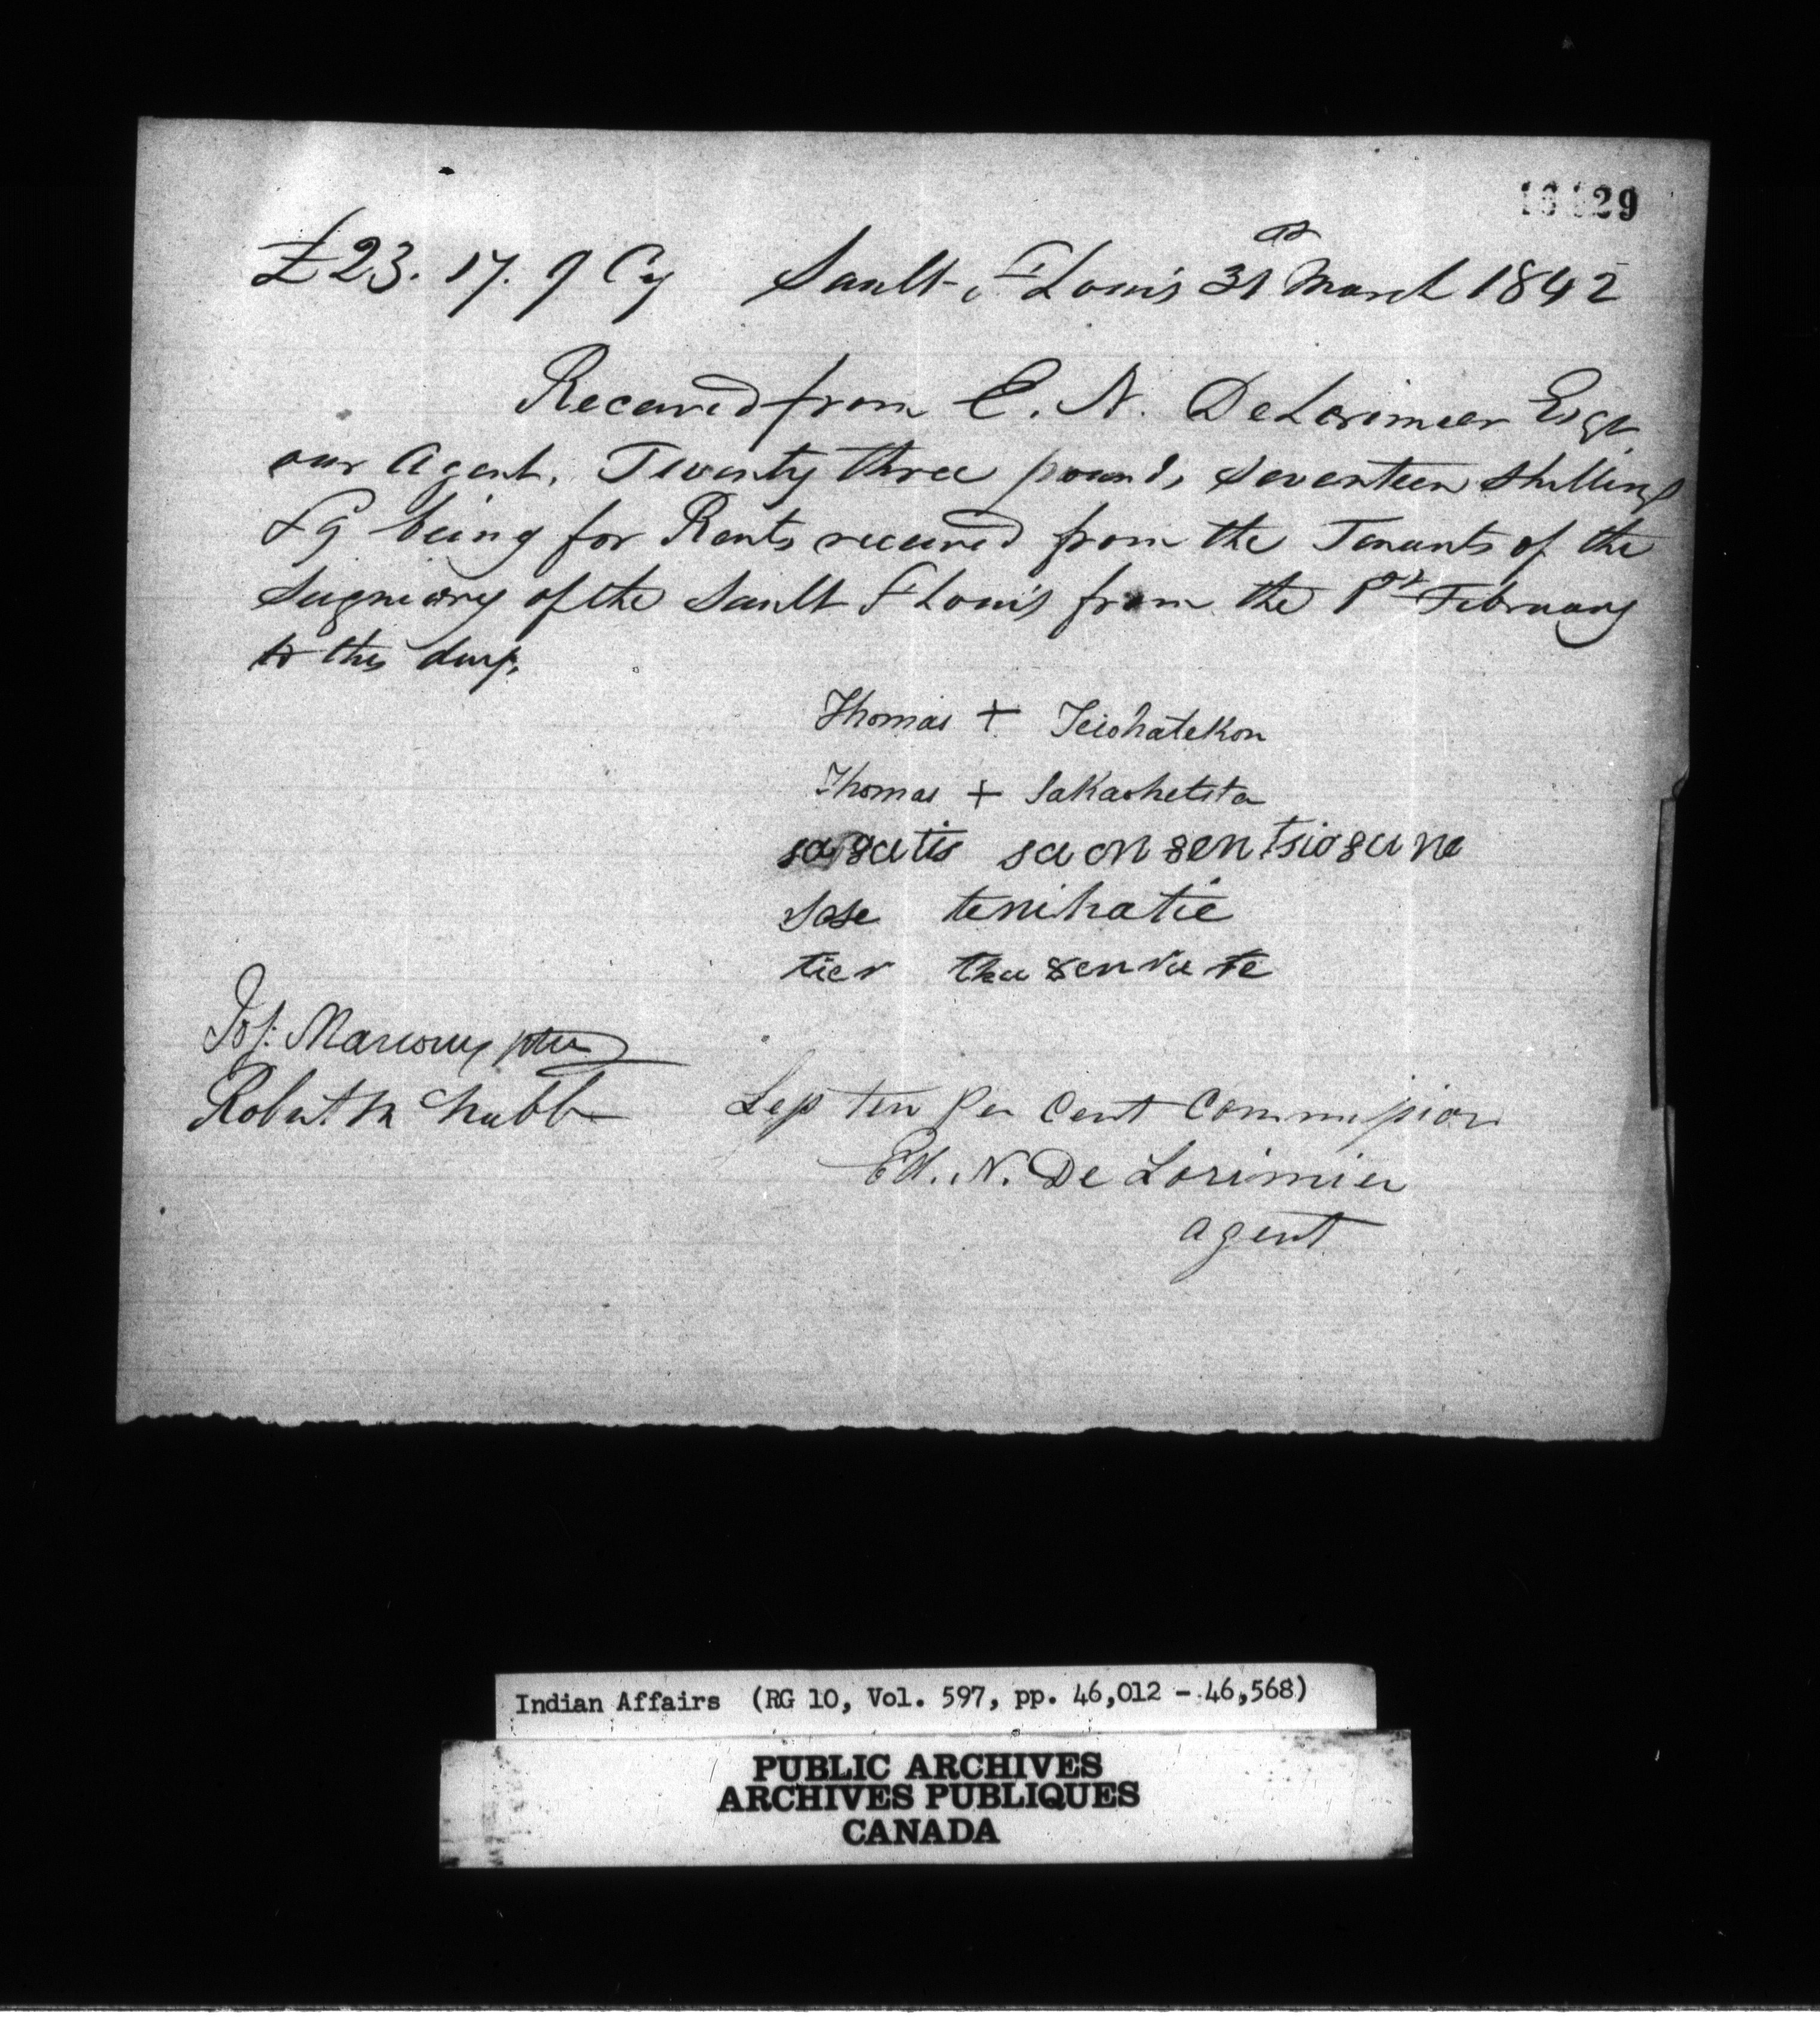 29
£23. 17. 9 Cy Sault St Louis 31st March 1842
Received from E. N. DeLorimier Esqr
our Agent, Twenty three pounds seventeen shilling
& 9 being for Rents received from the Tenants of the
Seigniory of the Sault St Louis from the 1st February
to this day,
Thomas + Teiohatekon
Thomas + Sakaohetsta
saȣatis saonȣentsioȣane
Sose tenihatie
tier thaȣenrate
Jos: Marcoux ptre
Robert M Chubb
Less ten per Cent Commission
Ed. N. De Lorimier
agent
Indian Affairs (RG 10, Vol. 597, pp. 46,012 - 46,568)
PUBLIC ARCHIVES
ARCHIVES PUBLIQUES
CANADA